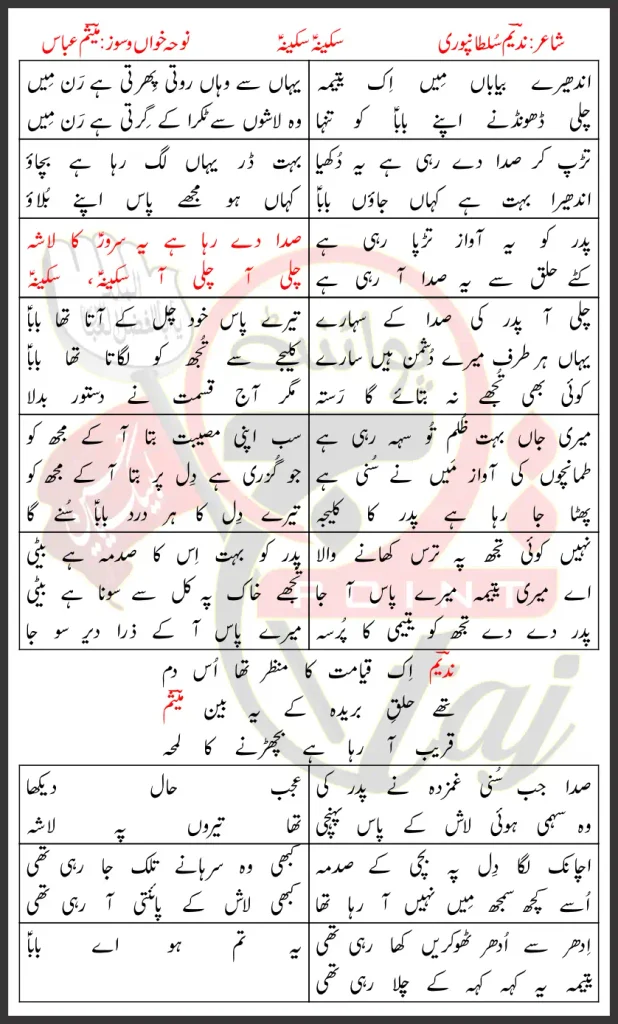 شاعر: ندیمؔ سُلطانپوری سکینہؑ سکینہؑ نوحہ خواں و سوز: میثمؔ عباس
اندھیرے بیاباں مِیں اِک یتیمہ
چلی ڈھونڈنے اپنے باباؑ کو تنہا
یہاں سے وہاں روتی پھرتی ہے رَن مِیں
وہ لاشوں سے ٹکرا کے گِرتی ہے رَن مِیں
تڑپ کر صدا دے رہی ہے یہ دُکھیا
اندھیرا بہت ہے کہاں جاؤں باباؑ
بہت ڈر یہاں لگ رہا ہے بچاؤ
کہاں ہو مجھے پاس اپنے بُلاؤ
پدر کو یہ آواز تڑپا رہی ہے
کٹے حلق سے یہ صدا آ رہی ہے
صدا دے رہا ہے یہ سرورؑ کا لاشہ
چلی آ چلی آ سکینہؑ، سکینہؑ
چلی آ پدر کی صدا کے سہارے
یہاں ہر طرف میرے دُشمن ہیں سارے
کوئی بھی تُجھے نہ بتائے گا رَستہ
تیرے پاس خود چل کے آتا تھا باباؑ
کلیجے سے تُجھ کو لگاتا تھا باباؑ
مگر آج قسمت نے دستور بدلا
میری جاں بہت ظُلم تُو سہہ رہی ہے
طمانچوں کی آواز مَیں نے سُنی ہے
پھٹا جا رہا ہے پدر کا کلیجہ
سب اپنی مصیبت بتا آ کے مجھ کو
جو گُزری ہے دِل پر بتا آ کے مجھ کو
تیرے دِل کا ہر درد باباؑ سُنے گا
نہیں کوئی تجھ پہ ترس کھانے والا
اے میری یتیمہ میرے پاس آ جا
پدر دے دے تجھ کو یتیمی کا پُرسہ
پدر کو بہت اِس کا صدمہ ہے بیٹی
تجھے خاک پہ کل سے سونا ہے بیٹی
میرے پاس آ کے ذرا دیر سو جا
ندیمؔ اِک قیامت کا منظر تھا اُس دم
تھے حلقِ بریدہ کے یہ بین میثمؔ
قریب آ رہا ہے بچھڑنے کا لمحہ
صدا جب سُنی غمزدہ نے پدر کی
وہ سہمی ہوئی لاش کے پاس پہنچی
عجب حال دیکھا
تھا تیروں پہ لاشہ
اچانک لگا دِل پہ بچی کے صدمہ
اُسے کچھ سمجھ مِیں نہیں آ رہا تھا
کبھی وہ سرہانے تلک جا رہی تھی
کبھی لاش کے پائنتی آ رہی تھی
اِدھر سے اُدھر ٹھوکریں کھا رہی تھی
یتیمہ یہ کہہ کہہ کے چلا رہی تھی
یہ تم ہو اے باباؑ
POINT